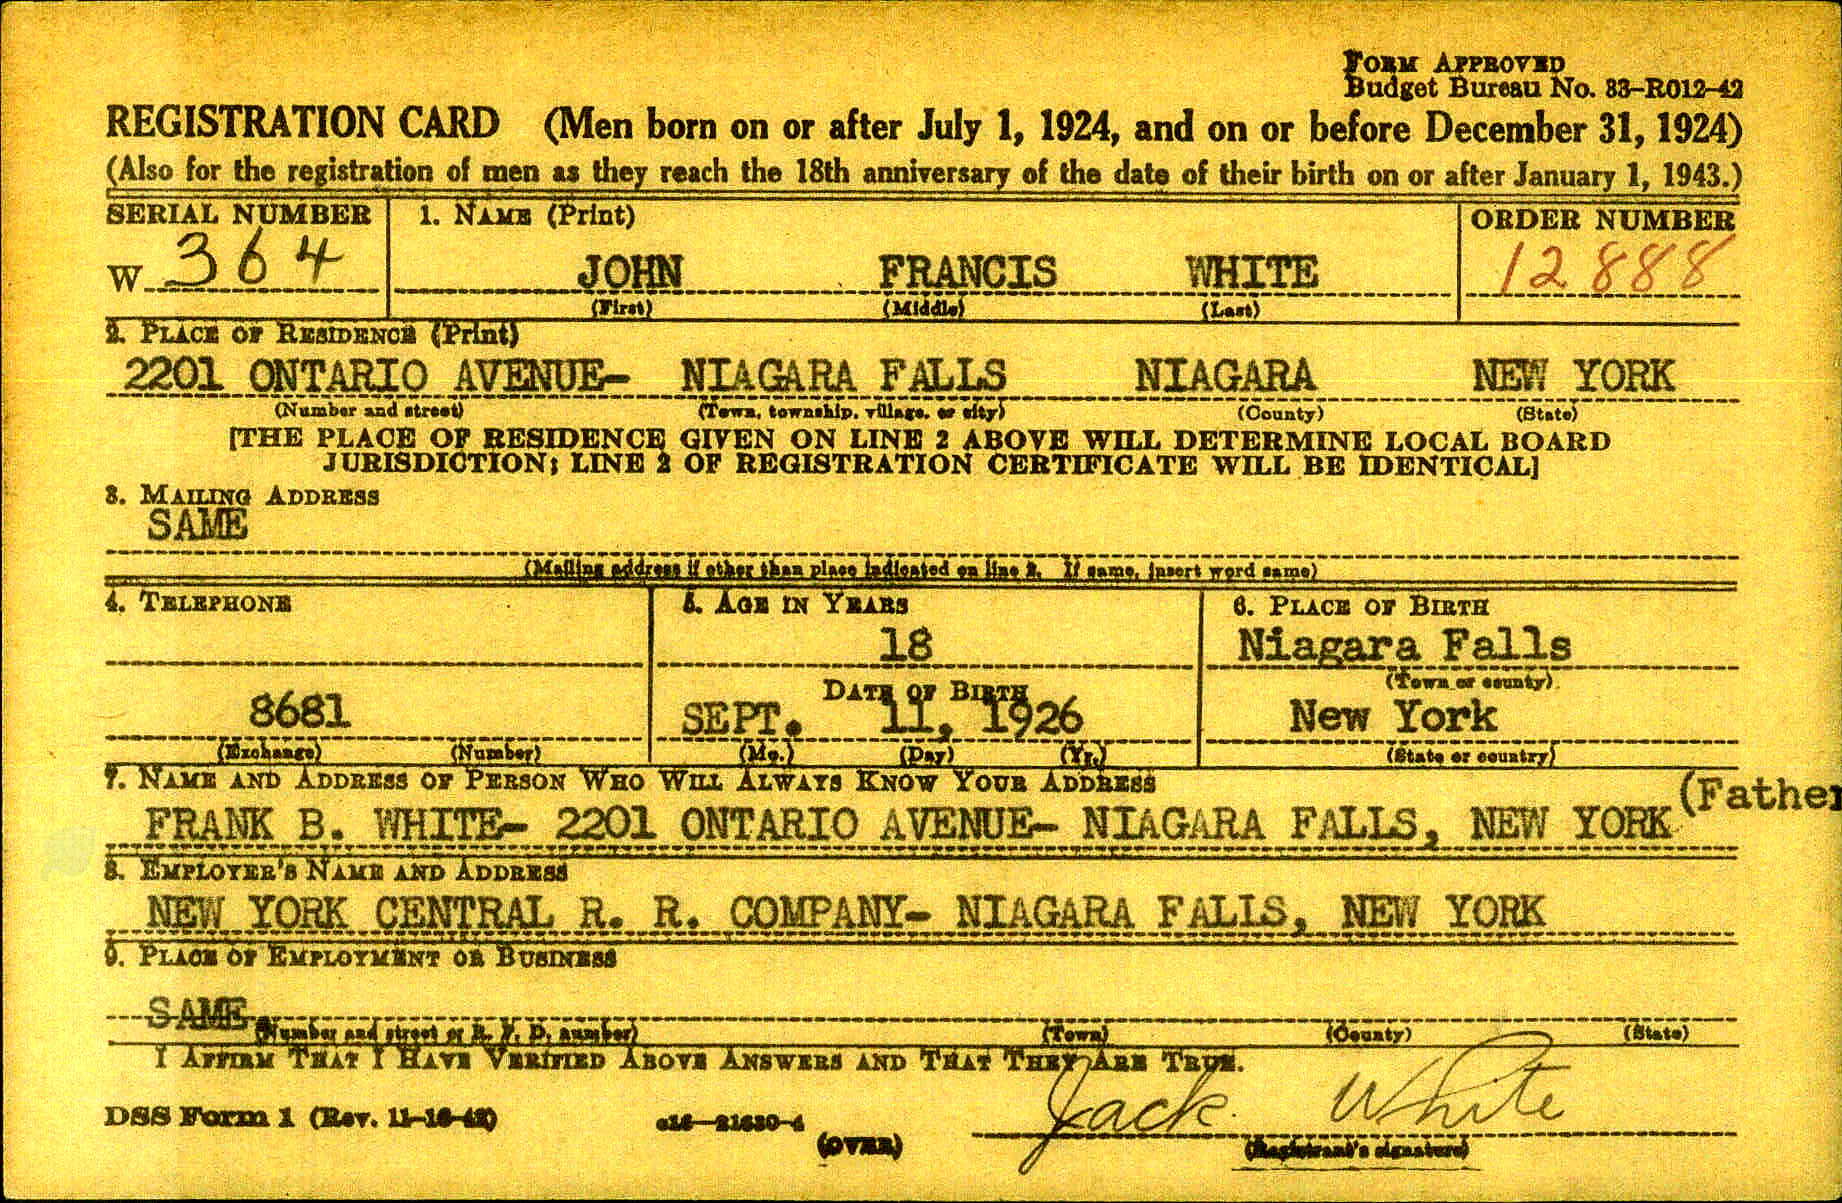 FORM APPROVED
Budget Bureau No. 33-R012-42
REGISTRATION CARD (Men born on or after July 1, 1924, and on or before December 31, 1924)
(Also for the registration of men as they reach the 18th anniversary of the date of their birth on or after January 1, 1943.)
SERIAL NUMBER 1. NAME (Print) ORDER NUMBER
W 364 JOHN FRANCIS WHITE 12888
(First) (Middle) (Last)
2. PLACE OF RESIDENCE (Print)
2201 ONTARIO AVENUE- NIAGARA FALLS NIAGARA NEW YORK
(Number and street) (Town, township, village, or city) (County) (State)
[THE PLACE OF RESIDENCE GIVEN ON LINE 2 ABOVE WILL DETERMINE LOCAL BOARD
JURISDICTION; LINE 2 OF REGISTRATION CERTIFICATE WILL BE IDENTICAL]
3. MAILING ADDRESS
SAME
(Mailing address if other than place indicated on line 2. If same, insert word same)
4. TELEPHONE 5. AGE IN YEARS 6. PLACE OF BIRTH
18 Niagara Falls
DATE OF BIRTH (Town or county)
8681 SEPT. 11, 1926 New York
(Exchange) (Number) (Mo.) (Day) (Yr.) (State or country)
7. NAME AND ADDRESS OF PERSON WHO WILL ALWAYS KNOW YOUR ADDRESS
FRANK B. WHITE- 2201 ONTARIO AVENUE- NIAGARA FALLS, NEW YORK (Father
8. EMPLOYER'S NAME AND ADDRESS
NEW YORK CENTRAL R. R. COMPANY- NIAGARA FALLS, NEW YORK
9. PLACE OF EMPLOYMENT OR BUSINESS
SAME
(Number and street or R. F. D. number) (Town) (County) (State)
I AFFIRM THAT I HAVE VERIFIED ABOVE ANSWERS AND THAT THEY ARE TRUE.
DSS Form 1 (Rev. 11-16-42) 16-21630-4 Jack White
(OVER) (Registrant's signature)